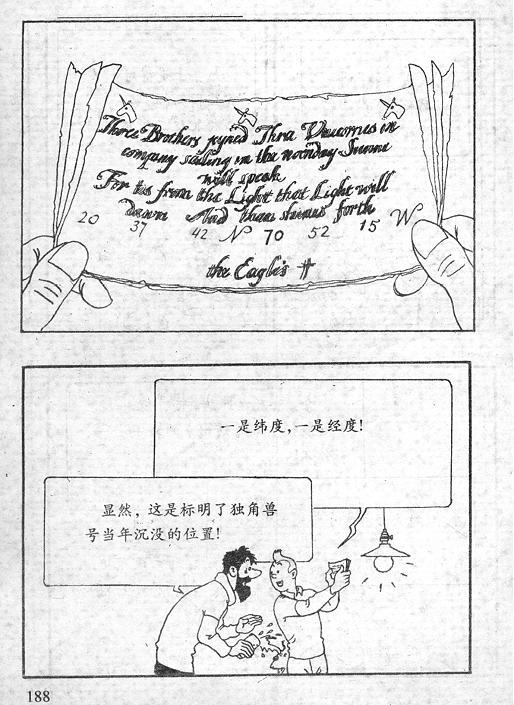 Three Brothers joyned Three Unicornes in
company sailing in the noonday Sunne
will speak
For tis from the Light that Light will
dawn And then shines forth
20 37 42 N 70 52 15 W
the Eagle's
一是纬度,一是经度!
显然,这是标明了独角兽
号当年沉没的位置!
188